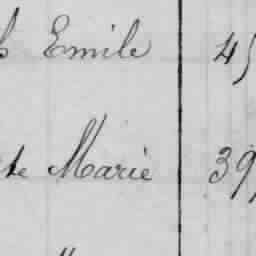 Emile 45
te Marie 39